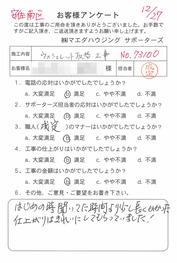 安佐南区
12/27
お客様アンケート
この度は工事のご用命を頂きありがとうございました。お手数で
すがご記入頂き、ご返送頂きますようお願い申し上げます。
㈱マエダハウジング サポーターズ
No.73100
施工内容
ウォシュレット取替工事
お名前
様
担当者
1. 電話の対応はいかがでしたでしょうか?
a 大変満足 b 満足 c やや不満 d 不満
2. サポーターズ担当者の対応はいかがでしたでしょうか?
a 大変満足 b 満足 c やや不満 d 不満
3. 職人( )のマナーはいかがでしたでしょうか?
a 大変満足 b 満足 c やや不満 d 不満
4. 工事の仕上がりはいかがでしたでしょうか?
a 大変満足 b 満足 c やや不満 d 不満
5. 工事の金額はいかがでしたでしょうか?
a 大変満足 b 満足 c やや不満 d 不満
6. その他、ご意見・ご要望をお書き下さい
はじめの時聞いてた時間より少し長くかかった
仕上がりはきれいにしてもらっていました!